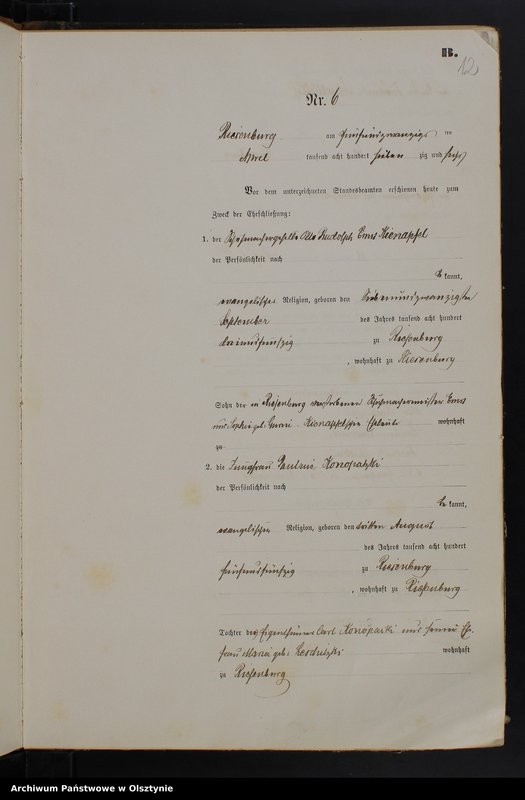 B.
12
Nr. 6
Riesenburg am fünfundzwanzigs ten
April tausend acht hundert sieben zig und sechs
Vor dem unterzeichneten Standesbeamten erschienen heute zum
Zweck der Eheschließung:
1. der Schuhmachergeselle Otto Rudolph Ernst Kienapfel
der Persönlichkeit nach
be kannt,
evangelischer Religion, geboren den siebenundzwanzigsten
September des Jahres tausend acht hundert
dreiundfünfzig zu Riesenburg
, wohnhaft zu Riesenburg
Sohn der in Riesenburg verstorbenen Schuhmachermeister Ernst
und Sophie geb. Kienapfelschen Eheleute wohnhaft
zu
2. die Jungfrau Pauline Konopatzki
der Persönlichkeit nach
be kannt,
evangelischer Religion, geboren den dritten August
des Jahres tausend acht hundert
fünfundfünfzig zu Riesenburg
, wohnhaft zu Riesenburg
Tochter des Eigenthümer Carl Konopatzki und seiner Ehe-
frau Maria geb. wohnhaft
zu Riesenburg
Archiwum Państwowe w Olsztynie